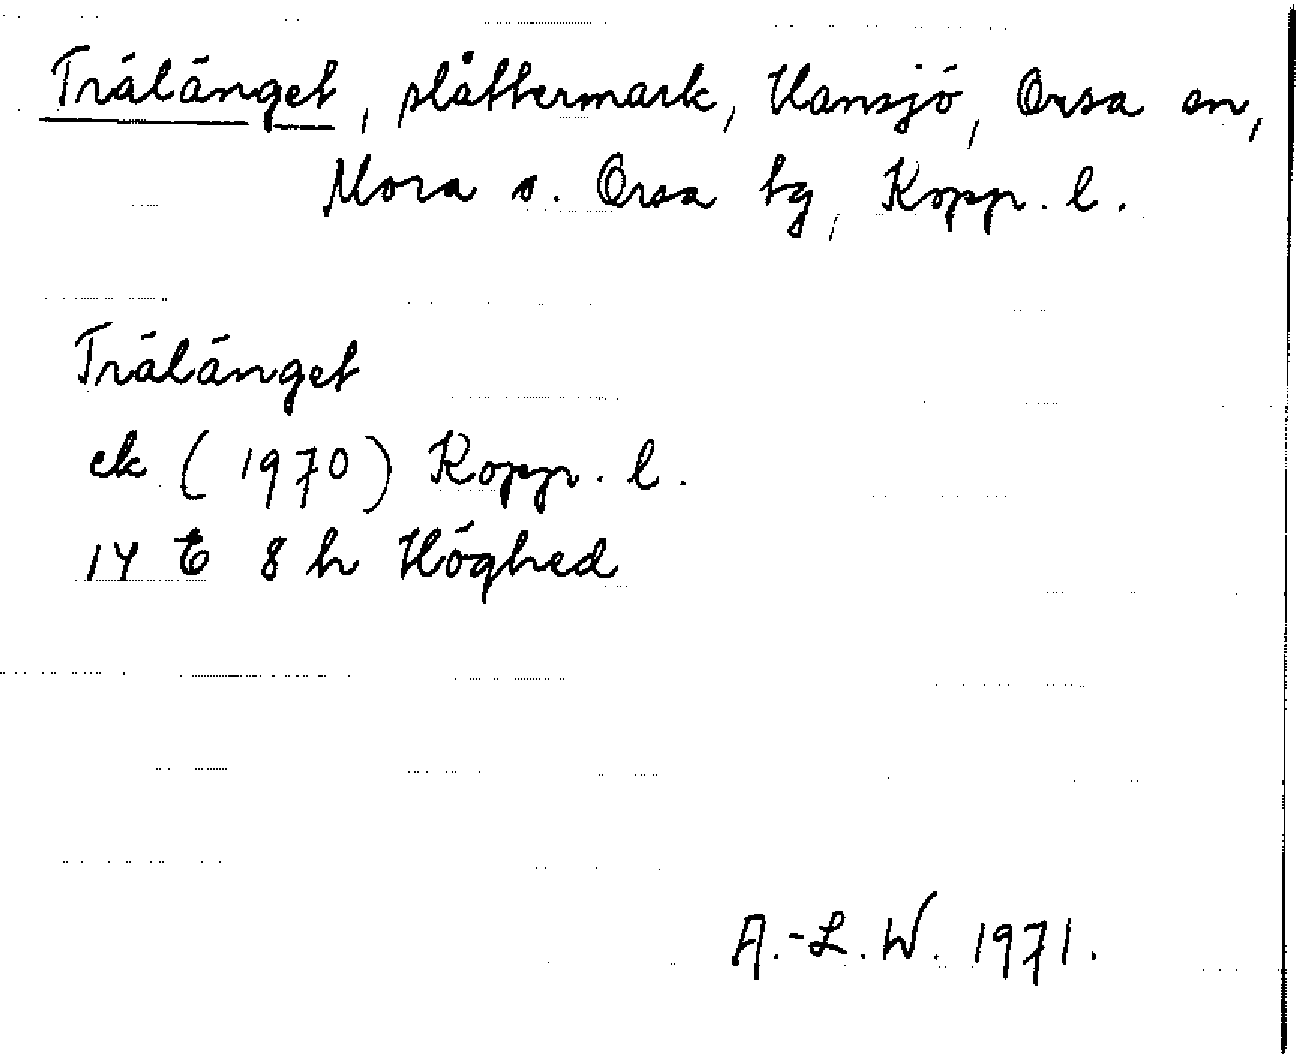 Trälänget, slåttermark, Hansjö, Orsa sn,
Mora o. Orsa tg, Kopp. l.
Trälänget
ek (1970) Kopp. l.
14 E 8 h Höghed
A.-L. W. 1971.